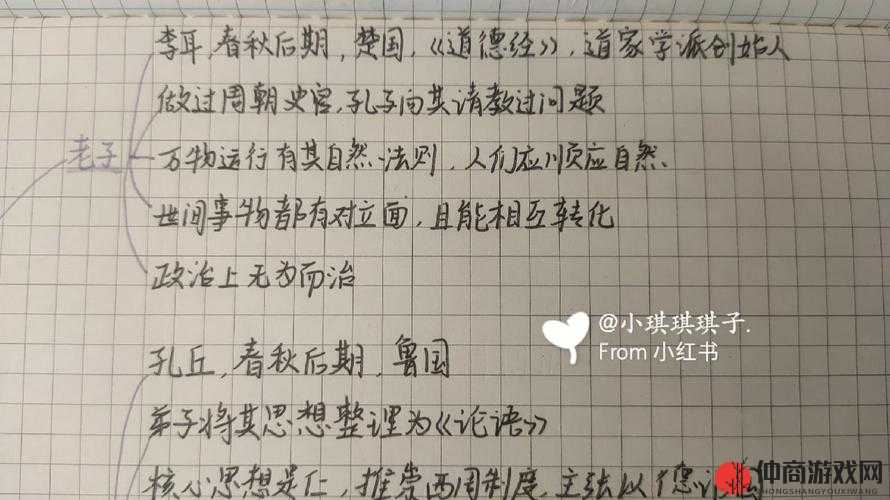 李耳,春秋后期,楚国,《道德经》,道家学派创始人
做过周朝史官,孔子向其请教过问题
老子
万物运行有其自然法则,人们应顺应自然.
世间事物都有对立面,且能相互转化
政治上无为而治
@小琪琪琪子.
From 小红书
孔丘,春秋后期,鲁国
弟子将其思想整理为《论语》
核心思想是仁,推崇西周制度,主张以德
仲商游戏网
HONGSHANGYOUXIWANG